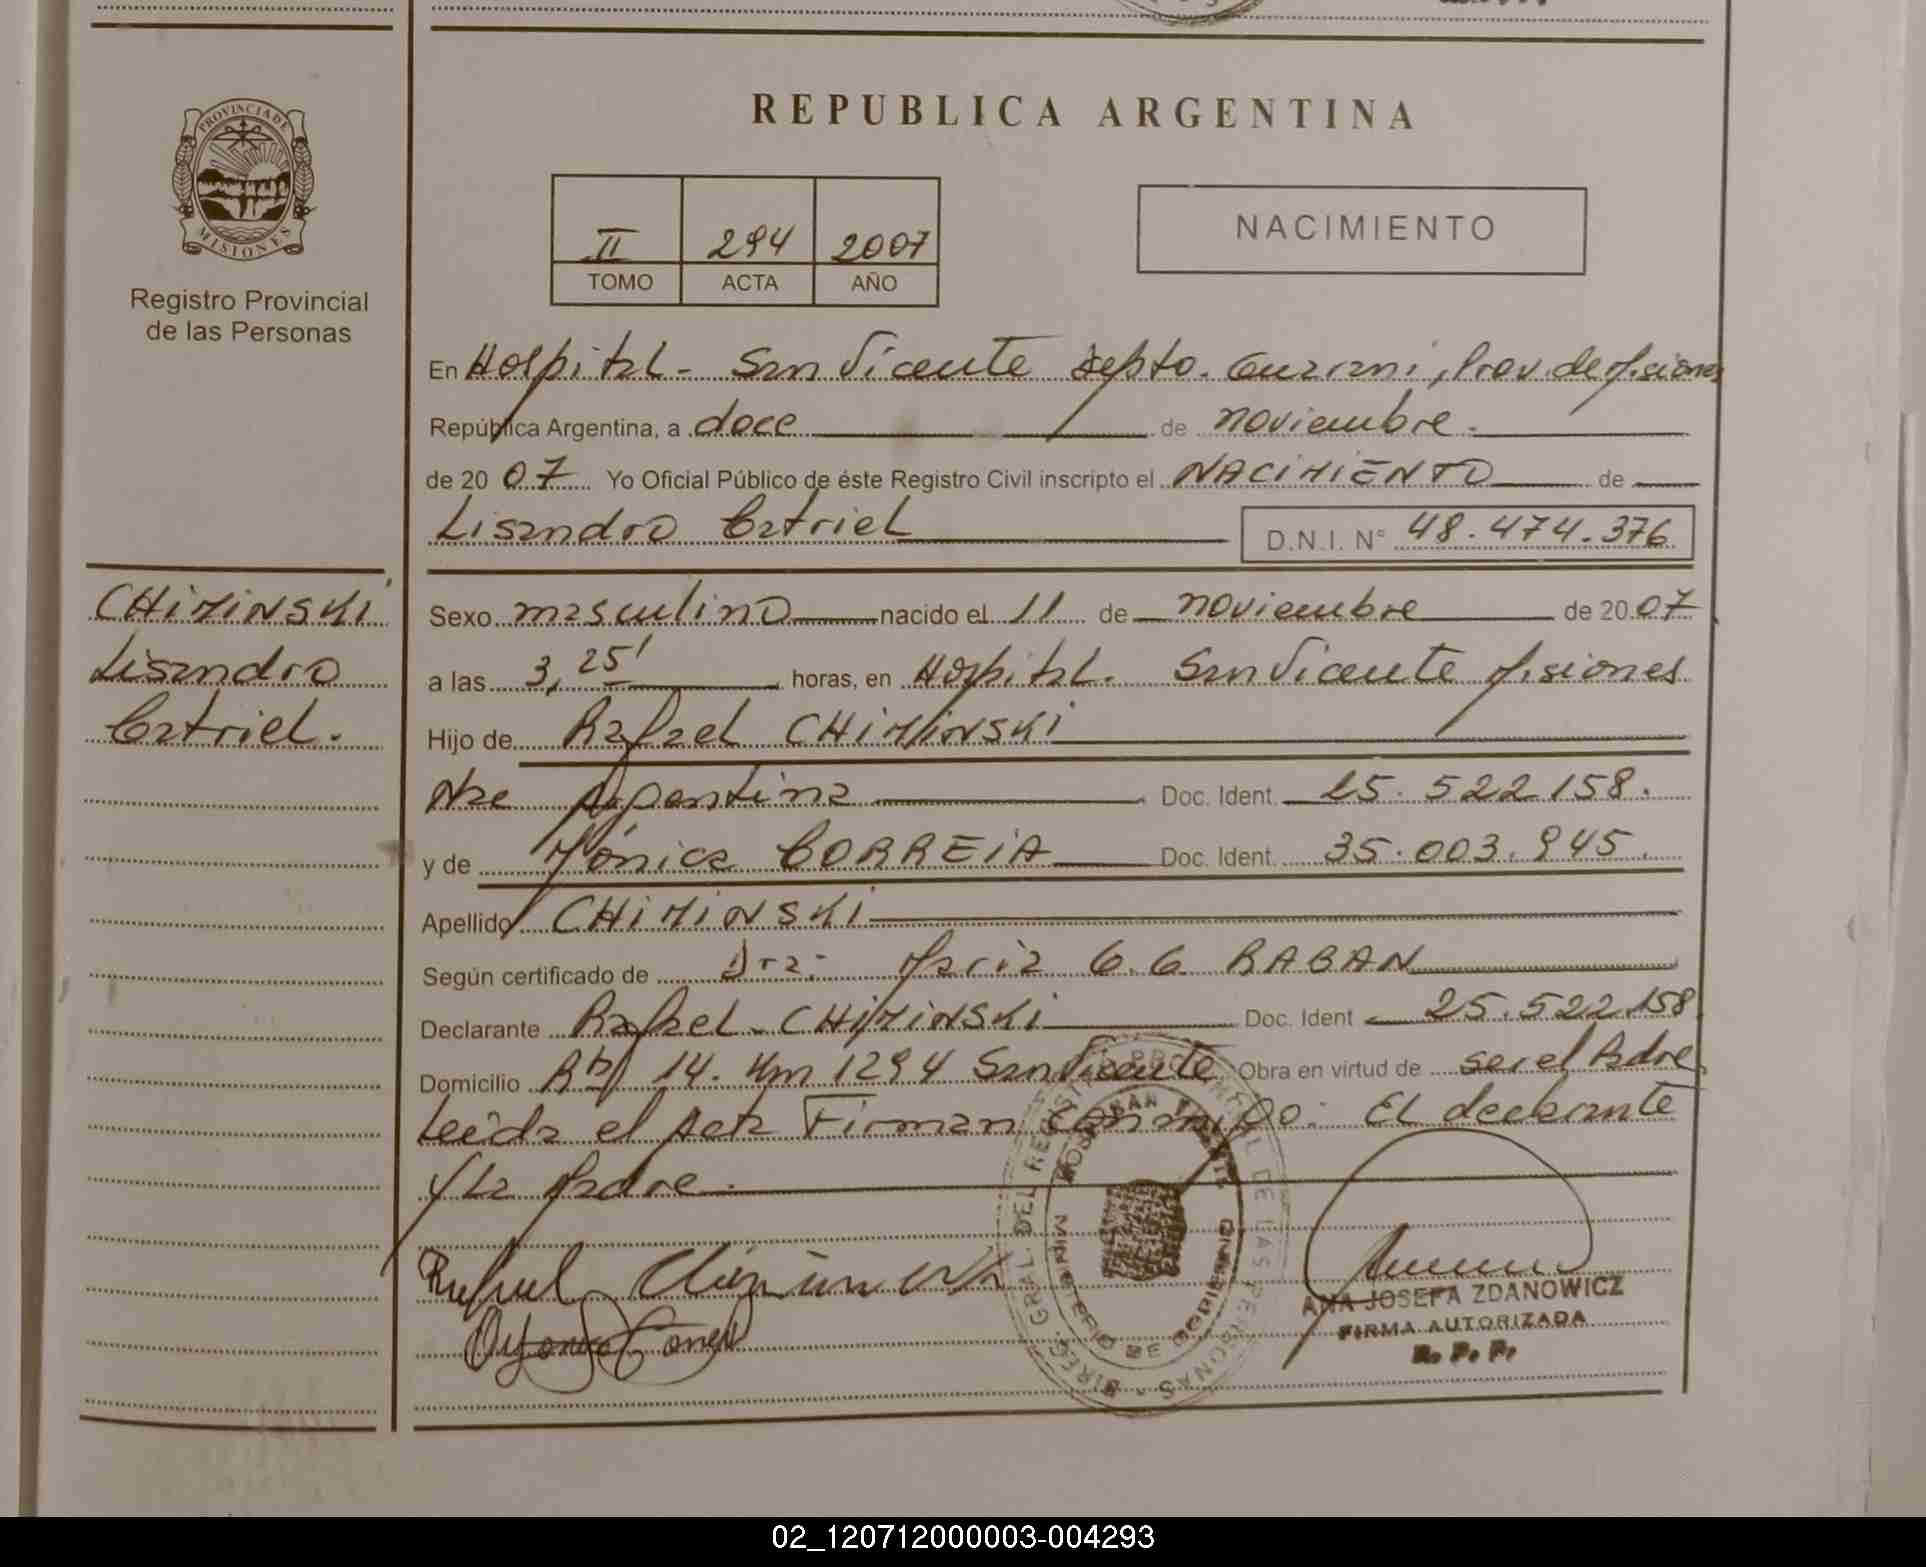 REPUBLICA ARGENTINA
PROVINCIA DE
MISIONES
Registro Provincial
de las Personas
II 294 2007
TOMO ACTA AÑO
NACIMIENTO
En Hospital - San Vicente Depto. Guarani, Prov. de Misiones
República Argentina, a doce de noviembre.
de 20 07 Yo Oficial Público de éste Registro Civil inscripto el NACIMIENTO de
Lisandro Catriel D.N.I. N° 48.474.376
CHIMINSKI
Lisandro
Catriel.
Sexo masculino nacido el 11 de noviembre de 20 07
a las 3,25' horas, en Hospital. San Vicente Misiones
Hijo de Rafael CHIMINSKI
Nac Argentina Doc. Ident. 25.522.158.
y de Mónica CORREIA Doc. Ident. 35.003.945.
Apellido CHIMINSKI
Según certificado de Dra: Maria G.G RABAN
Declarante Rafael CHIMINSKI Doc. Ident 25.522.158
Domicilio 14. Km 1294 San Vicente Obra en virtud de ser el Padre
Leida el Acta Firman conmigo: El declarante
y La Madre.
DIREC. GRAL. DEL REGISTRO PROVINCIAL DE LAS PERSONAS
MINISTERIO DE GOBIERNO
Rafael
ANA JOSEFA ZDANOWICZ
FIRMA AUTORIZADA
R. P. P.
02_120712000003-004293